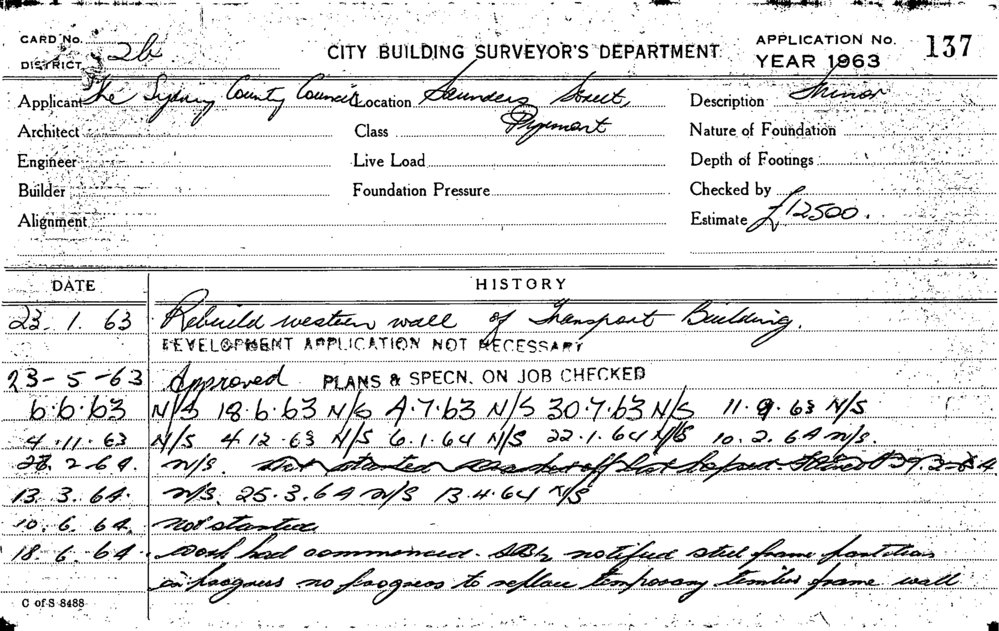 CARD No.
DISTRICT 2b
CITY BUILDING SURVEYOR'S DEPARTMENT
APPLICATION No. 137
YEAR 1963
Applicant The Sydney County Council Location Saunders Street, Description Minor
Architect Class Pyrmont Nature of Foundation
Engineer Live Load Depth of Footings
Builder Foundation Pressure Checked by
Alignment Estimate £12500.
DATE HISTORY
23. 1. 63 Rebuild western wall of Transport Building.
DEVELOPMENT APPLICATION NOT NECESSARY
23-5-63 Approved PLANS & SPECN. ON JOB CHECKED
6.6.63 N/S 18.6.63 N/S 4.7.63 N/S 30.7.63 N/S 11.9.63 N/S
4.11.63 N/S 4.12.63 N/S 6.1.64 N/S 22.1.64 N/S 10.2.64 N/S.
28.2.64. N/S. not started
13.3.64. N/S. 25.3.64 N/S 13.4.64 N/S
10.6.64. not started
18.6.64. Work had commenced. notified steel frame partitions
in progress no progress to replace temporary timber frame wall
C of S 8488